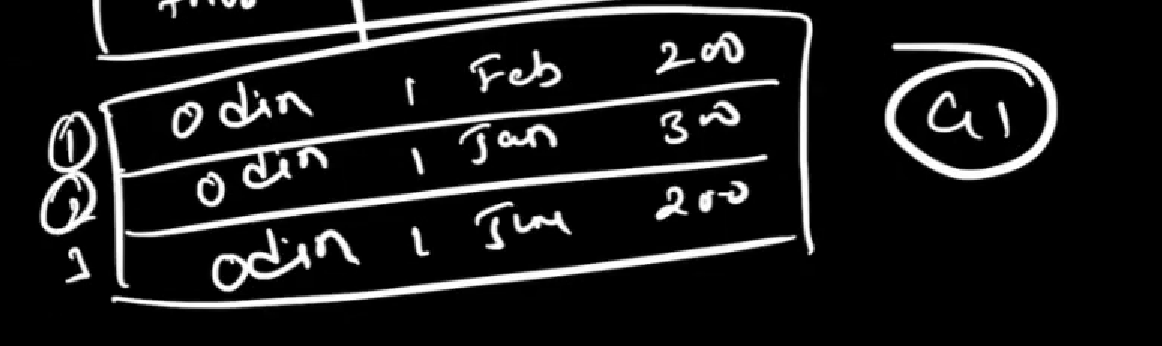 ① Odin 1 Feb 200
② Odin 1 Jan 300
3 Odin 1 Jun 200
G1